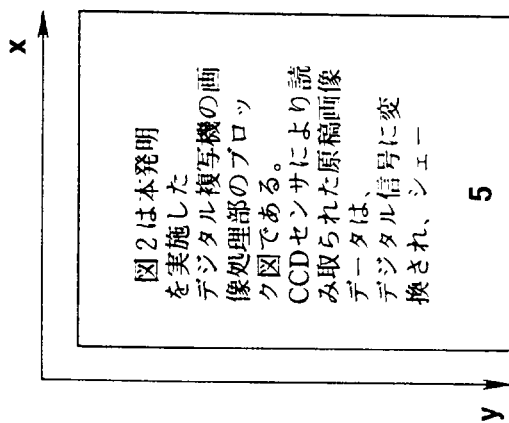 x
図２は本発明
を実施した
デジタル複写機の画
像処理部のブロッ
ク図である。
CCDセンサにより読
み取られた原稿画像
データは、
デジタル信号に変
換され、シェー
5
y